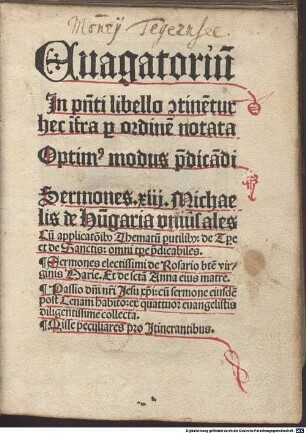 Monrij Tegernsee
Euagatoriū
In pn̄ti libello ↄtinētur
hec īfra ꝑ ordinē notata
Optimꝰ modus p̄dicādi
Sermones .xiij. Michae
lis de Hūgaria vniūsales
Cū applicatōibꝰ Thematū ꝑutilibꝰ: de Tp̄e
et de Sanctis: omni tp̄e p̄dicabiles.
¶ Sermones electissimi de Rosario btē vir
ginis Marie. Et de sctā Anna eius matre.
¶ Passio dn̄i nr̄i Jesu xp̄i: cū sermone eiusdē
post Cenam habito: ex quattuor euangelistis
diligentissime collecta.
¶ Misse peculiares pro Itinerantibus.